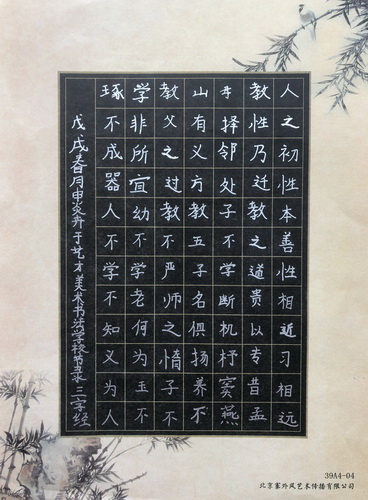 人之初性本善性相近习相远
教性乃迁教之道贵以专昔孟
母择邻处子不学断机杼窦燕
山有义方教五子名俱扬养不
教父之过教不严师之惰子不
学非所宜幼不学老何为玉不
琢不成器人不学不知义为人
戊戌春月申奕卉于艺才美术书法学校书录三字经
39A4-04
北京塞外风艺术传播有限公司